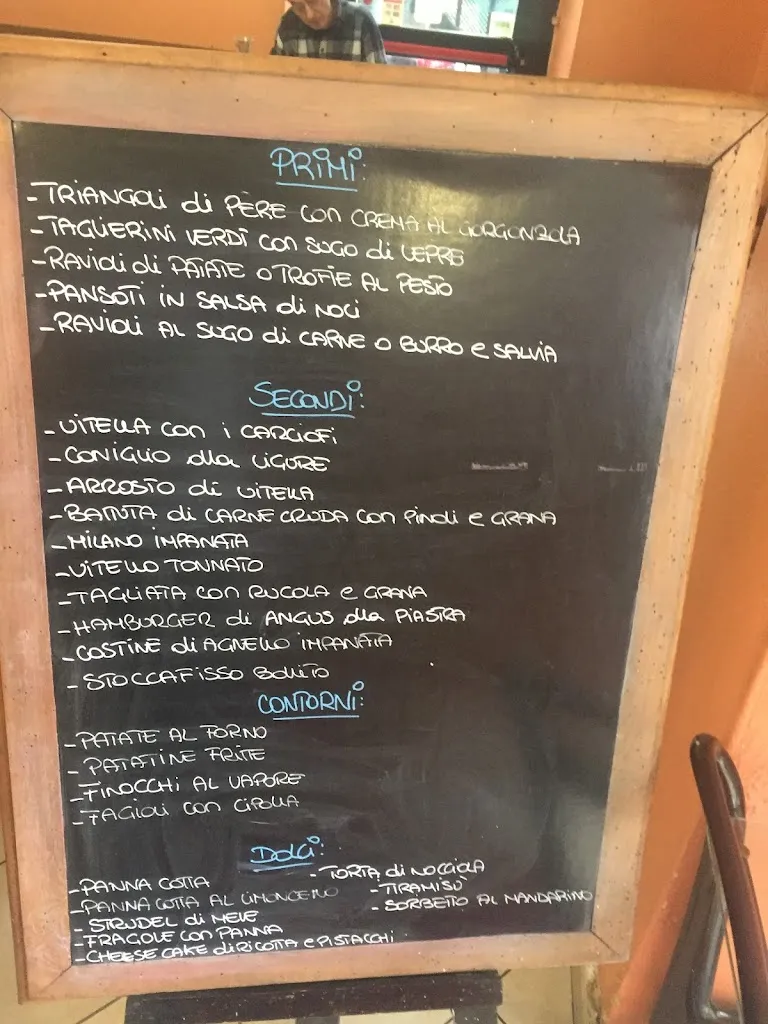 PRIMI:
-TRIANGOLI di PERE CON CREMA AL GORGONZOLA
-TAGLIERINI VERDI CON SUGO di LEPRE
-RAVIOLI di PATATE O TROFIE AL PESTO
-PANSOTI IN SALSA di NOCI
-RAVIOLI AL SUGO di CARNE O BURRO e SALVIA
SECONDI:
-VITELLA CON i CARCIOFI
-CONIGLIO alla LIGURE
-ARROSTO di VITELLA
-BATTUTA di CARNE CRUDA CON PINOLI e GRANA
-MILANO IMPANATA
-VITELLO TONNATO
-TAGLIATA CON RUCOLA e GRANA
-HAMBURGER di ANGUS alla PIASTRA
-COSTINE di AGNELLO IMPANATA
-STOCCAFISSO BOLLITO
CONTORNI:
-PATATE AL FORNO
-PATATINE FRITE
-FINOCCHI AL VAPORE
-FAGIOLI CON CIPOLLA
DOLCI:
-PANNA COTTA
-PANNA COTTA AL LIMONCELLO
-STRUDEL di MELE
-FRAGOLE CON PANNA
-CHEESE CAKE di RICOTTA e PISTACCHI
-TORTA di NOCCIOLA
-TIRAMISÙ
-SORBETTO AL MANDARINO